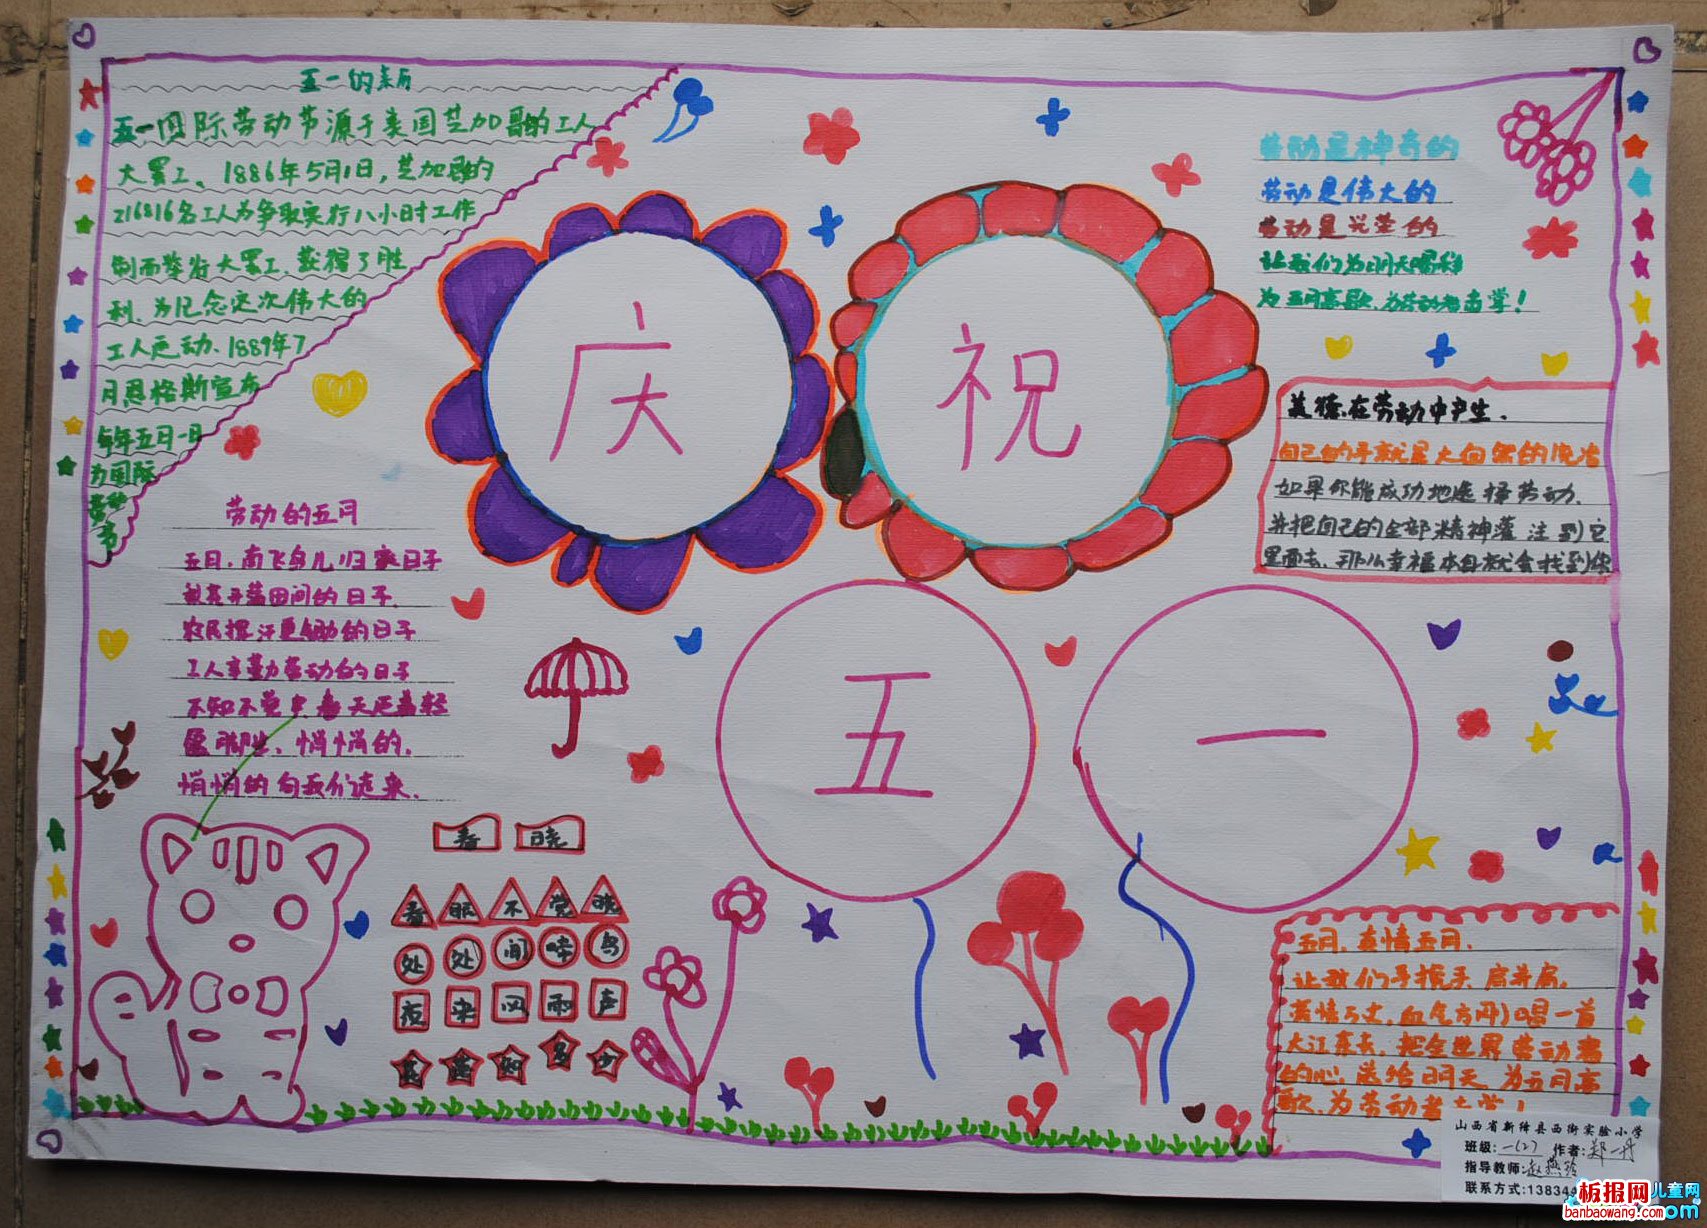 五一的来历
五一国际劳动节源于美国芝加哥的工人
大罢工、1886年5月1日,芝加哥的
216816名工人为争取实行八小时工作
制而举行大罢工、获得了胜
利、为纪念这次伟大的
工人运动、1889年7
月恩格斯宣布
每年五月一日
为国际
劳动
节
庆祝
五一
劳动是神奇的
劳动是伟大的
劳动是光荣的
让我们为明天喝彩
为五月高歌、为劳动者击掌!
美德在劳动中产生.
自己的手就是大自然的
如果你能成功地选择劳动.
并把自己的全部精神灌注到它
里面去、那么幸福本身就会找到你
劳动的五月
五月,南飞鸟儿归来日子
田间的日子
农民挥汗的日子
工人辛勤劳动的日子
不知不觉中春天迈着轻
盈脚步、悄悄的,
悄悄的向我们走来.
春晓
春眠不觉晓
处处闻啼鸟
夜来风雨声
花落知多少
五月,真情五月、
让我们手握手 肩并肩,
唱一首
大江东去、把全世界劳动者
的心,送给明天 为五月高
歌、为劳动者击掌!
山西省新绛县西街实验小学
班级:一(2) 作者:郑一丹
指导教师:赵燕玲
联系方式:13834
板报网 儿童网
banbaowang.com